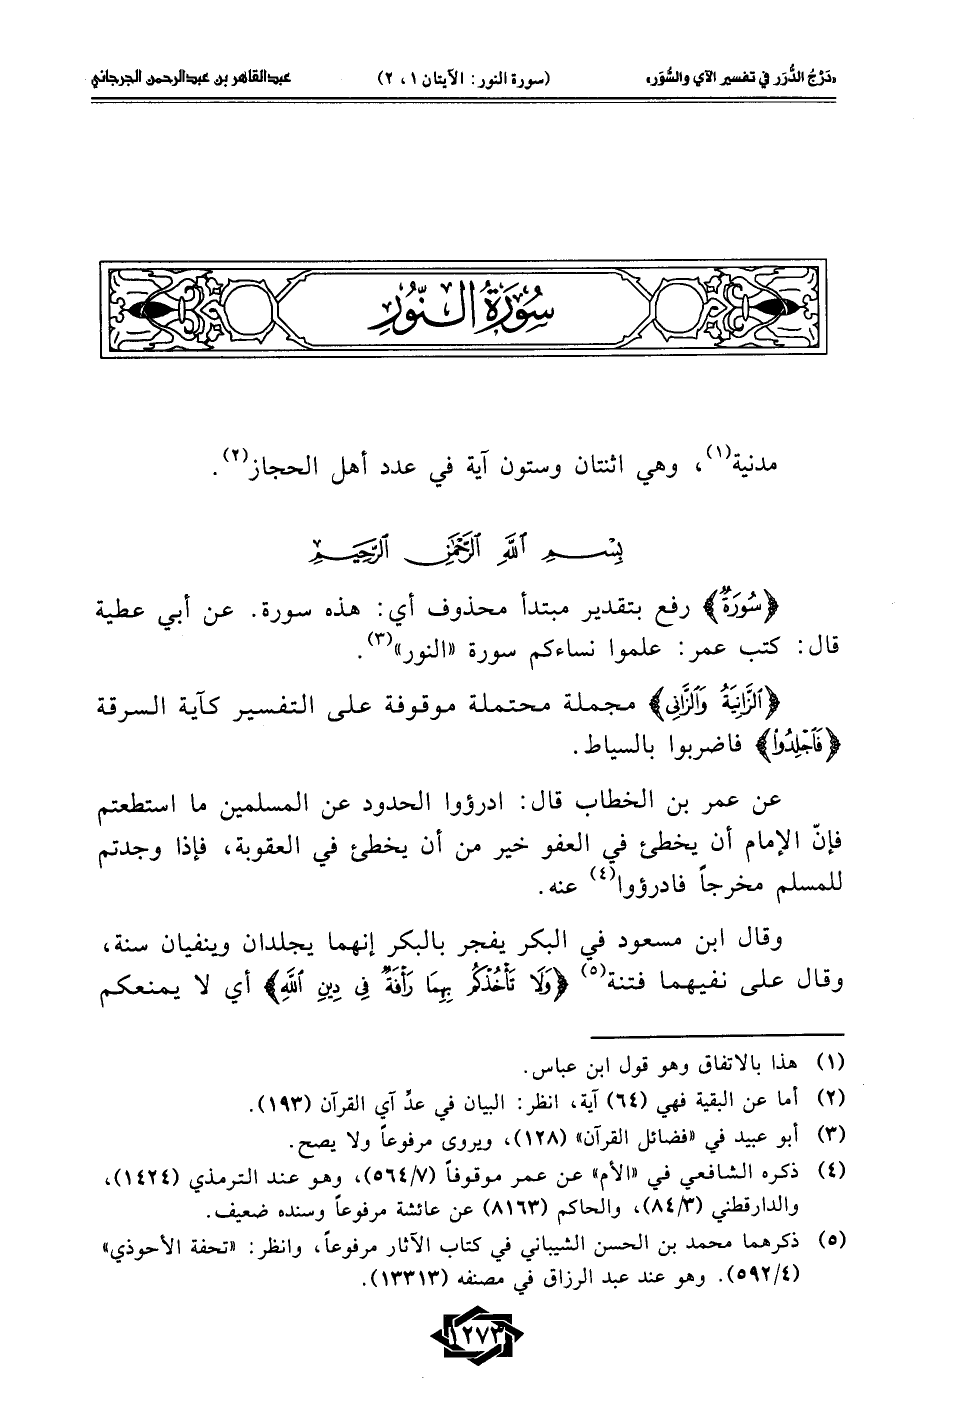 «دَرْجُ الدُّرَر في تفسير الآي والسُّوَر»
(سورة النور: الآيتان ١، ٢)
عبدالقاهر بن عبدالرحمن الجرجاني
سُورَةُ النُّورِ
مدنية(١)، وهي اثنتان وستون آية في عدد أهل الحجاز(٢).
بِسْمِ ٱللَّهِ ٱلرَّحْمَٰنِ ٱلرَّحِيمِ
﴿سُورَةٌ﴾ رفع بتقدير مبتدأ محذوف أي: هذه سورة. عن أبي عطية
قال: كتب عمر: علموا نساءكم سورة «النور»(٣).
﴿ٱلزَّانِيَةُ وَٱلزَّانِي﴾ مجملة محتملة موقوفة على التفسير كآية السرقة
﴿فَٱجْلِدُواْ﴾ فاضربوا بالسياط.
عن عمر بن الخطاب قال: ادرؤوا الحدود عن المسلمين ما استطعتم
فإنّ الإمام أن يخطئ في العفو خير من أن يخطئ في العقوبة، فإذا وجدتم
للمسلم مخرجاً فادرؤوا(٤) عنه.
وقال ابن مسعود في البكر يفجر بالبكر إنهما يجلدان وينفيان سنة،
وقال على نفيهما فتنة(٥) ﴿وَلَا تَأْخُذْكُم بِهِمَا رَأْفَةٌ فِي دِينِ ٱللَّهِ﴾ أي لا يمنعكم
(١) هذا بالاتفاق وهو قول ابن عباس.
(٢) أما عن البقية فهي (٦٤) آية، انظر: البيان في عدِّ آي القرآن (١٩٣).
(٣) أبو عبيد في «فضائل القرآن» (١٢٨)، ويروى مرفوعاً ولا يصح.
(٤) ذكره الشافعي في «الأم» عن عمر موقوفاً (٥٦٤/٧)، وهو عند الترمذي (١٤٢٤)،
والدارقطني (٨٤/٣)، والحاكم (٨١٦٣) عن عائشة مرفوعاً وسنده ضعيف.
(٥) ذكرهما محمد بن الحسن الشيباني في كتاب الآثار مرفوعاً، وانظر: «تحفة الأحوذي»
(٥٩٢/٤). وهو عند عبد الرزاق في مصنفه (١٣٣١٣).
١٢٧٣